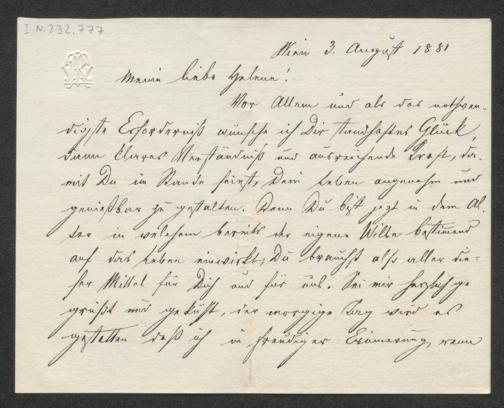 I.N. 232.777
Wien 3. August 1881
Meine liebe Helene!
Vor Allem und als das nothwen-
digste Erforderniß wünsche ich Dir standhaftes Glück,
dann klares Verständniß und ausreichende Kraft, da-
mit Du im Stande seiest, Dein Leben angenehm und
genießbar zu gestalten. Denn Du bist jezt in dem Al-
ter in welchem bereits der eigene Wille bestimmend
auf das Leben einwirkt; Du brauchst also aller die-
ser Mittel für Dich und für uns. Sei mir herzlich ge
grüßt und geküßt, der morgige Tag wird es
gestatten daß ich in freudiger Erinnerung, wenn